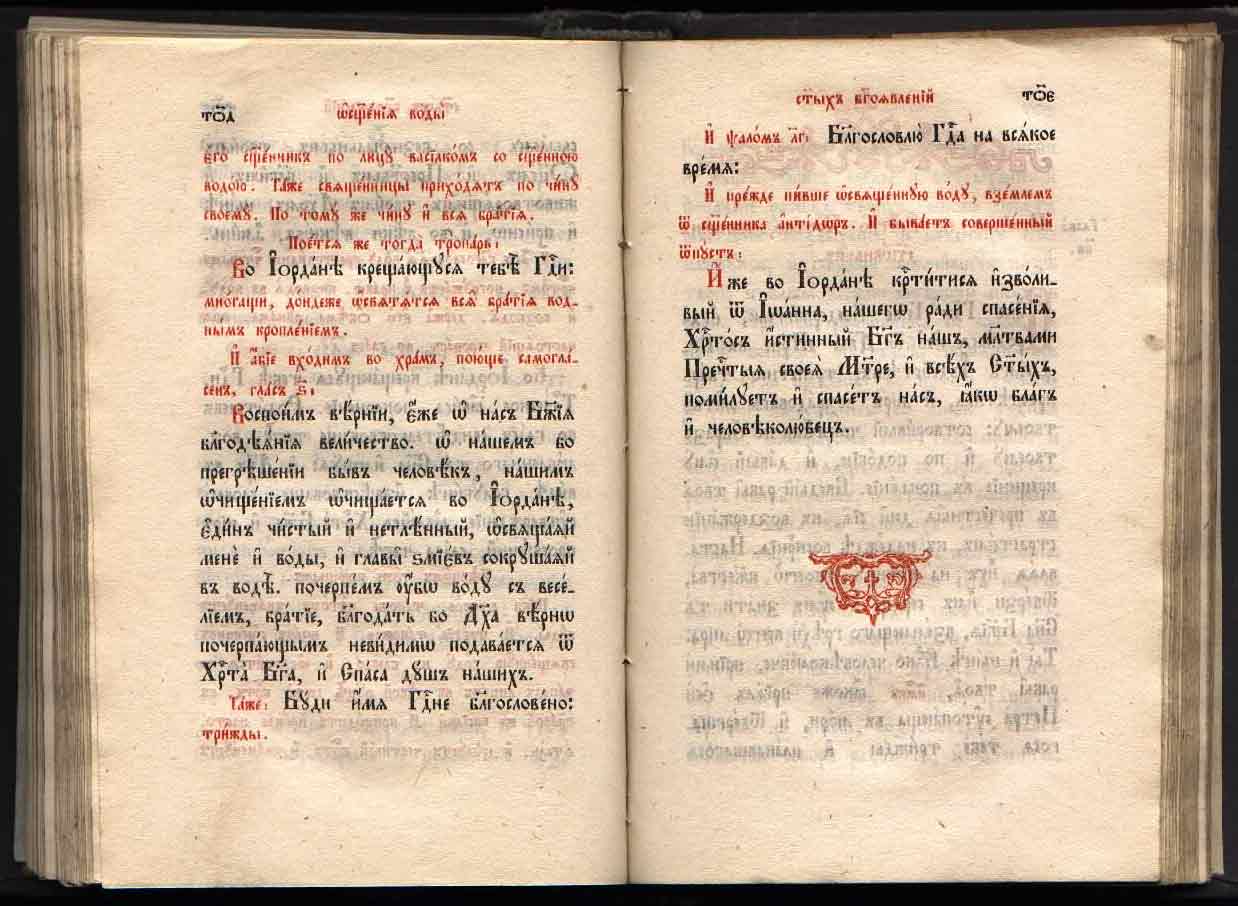 тод
ѡсщ҃е́нїѧ воды̀
є҆го̀ сщ҃е́нникъ по лицꙋ̀ васїлко́мъ со сщ҃е́нною
водо́ю. Та́же свѧще́нницы прихо́дѧтъ по чи́нꙋ
своемꙋ̀. По томꙋ́ же чи́нꙋ и҆ всѧ̀ бра́тїѧ.
Пое́тсѧ же тогда̀ тропа́рь:
Во І҆ѻрда́нѣ креща́ющꙋсѧ тебѣ̀ Гдⷭ҇и:
многащи, до́ндеже ѡ҆свѧтѧ́тсѧ всѧ̀ бра́тїѧ вод-
ны́мъ кропле́нїемъ.
И҆ а҆́бїе вхо́димъ во хра́мъ, пою́ще самогла́-
сенъ, гла́съ ѕ҃:
Воспои́мъ вѣ́рнїи, є҆́же ѡ҆ на́съ Бж҃їѧ
бл҃годѣѧ́нїѧ вели́чество. ѡ҆ на́шемъ бо
прегрѣше́нїи бы́въ человѣ́къ, на́шимъ
ѡ҆чище́нїемъ ѡ҆чища́етсѧ во І҆ѻрда́нѣ,
є҆ди́нъ чи́стый и҆ нетлѣ́нный, ѡ҆свѧща́ѧй
менѐ и҆ во́ды, и҆ главы̑ ѕмїе́въ сокрꙋша́ѧй
въ водѣ̀. поче́рпемъ ᲂу҆̀бѡ во́дꙋ съ весе́-
лїемъ, бра́тїе, бл҃года́ть бо Дх҃а вѣ́рнѡ
почерпа́ющымъ неви́димѡ подава́етсѧ ѿ
Хрⷭ҇та̀ Бг҃а, и҆ Спа́са дꙋ́шъ на́шихъ.
Та́же: Бꙋ́ди и҆́мѧ Гдⷭ҇не бл҃гослове́но:
три́жды.
ст҃ы́хъ бг҃оѧвле́нїй
тое
И҆ ѱало́мъ л҃г: Бл҃гословлю̀ Гдⷭ҇а на всѧ́кое
вре́мѧ:
И҆ пре́жде пи́вше ѡ҆свѧще́ннꙋю во́дꙋ, взе́млемъ
ѿ сщ҃е́нника а҆нтїдѡ́ръ. И҆ быва́етъ соверше́нный
ѿпꙋ́стъ:
И҆́же во І҆ѻрда́нѣ крⷭ҇ти́тисѧ и҆зво́ли-
вый ѿ І҆ѡа́нна, на́шегѡ ра́ди спасе́нїѧ,
Хрⷭ҇то́съ и҆́стинный Бг҃ъ на́шъ, мл҃твами
Пречⷭ҇тыѧ своеѧ̀ Мт҃ре, и҆ всѣ́хъ Ст҃ы́хъ,
поми́лꙋетъ и҆ спасе́тъ на́съ, ꙗ҆́кѡ бла́гъ
и҆ человѣколю́бецъ.